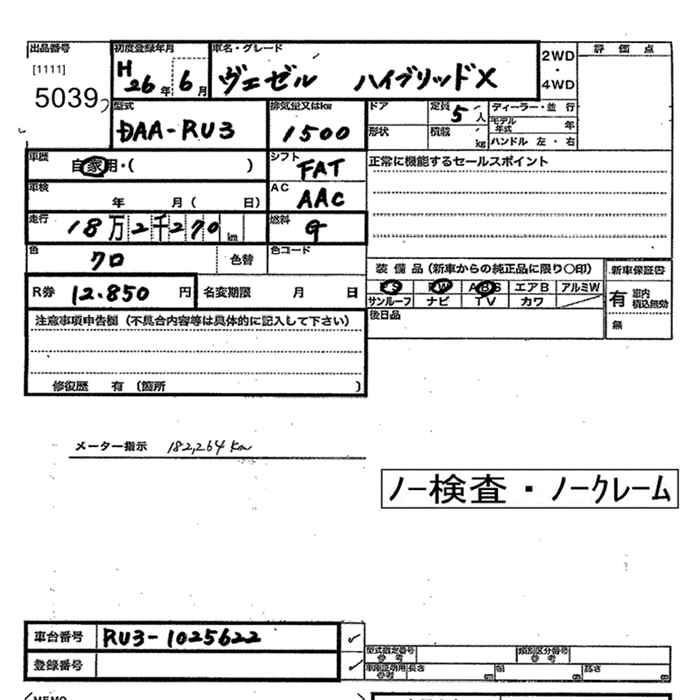 出品番号 初度登録年月 車名・グレード 2WD・4WD 評価点
[1111] 5039 H26年6月 ヴェゼル ハイブリッドX
型式 排気量又はkw ドア 定員 5人 ディーラー・並行
DAA-RU3 1500 形状 積載 kg モデル年式 年
ハンドル 左・右
車歴 自家用・( ) シフト FAT 正常に機能するセールスポイント
車検 年 月( 日) AC AAC
走行 18万2千270km 燃料 G
色 クロ 色替 色コード
装備品(新車からの純正品に限り○印) 新車保証書
R券 12.850円 名変期限 月 日 PS PW ABS エアB アルミW 有 車内積込無効
サンルーフ ナビ TV カワ
注意事項申告欄(不具合内容等は具体的に記入して下さい) 後日品 無
修復歴 有 (箇所 )
メーター指示 182,264km
ノー検査・ノークレーム
車台番号 RU3-1025622
登録番号
型式指定番号 参考 類別区分番号 参考
車庫証明用 参考 長さ 幅 高さ
(MEMO